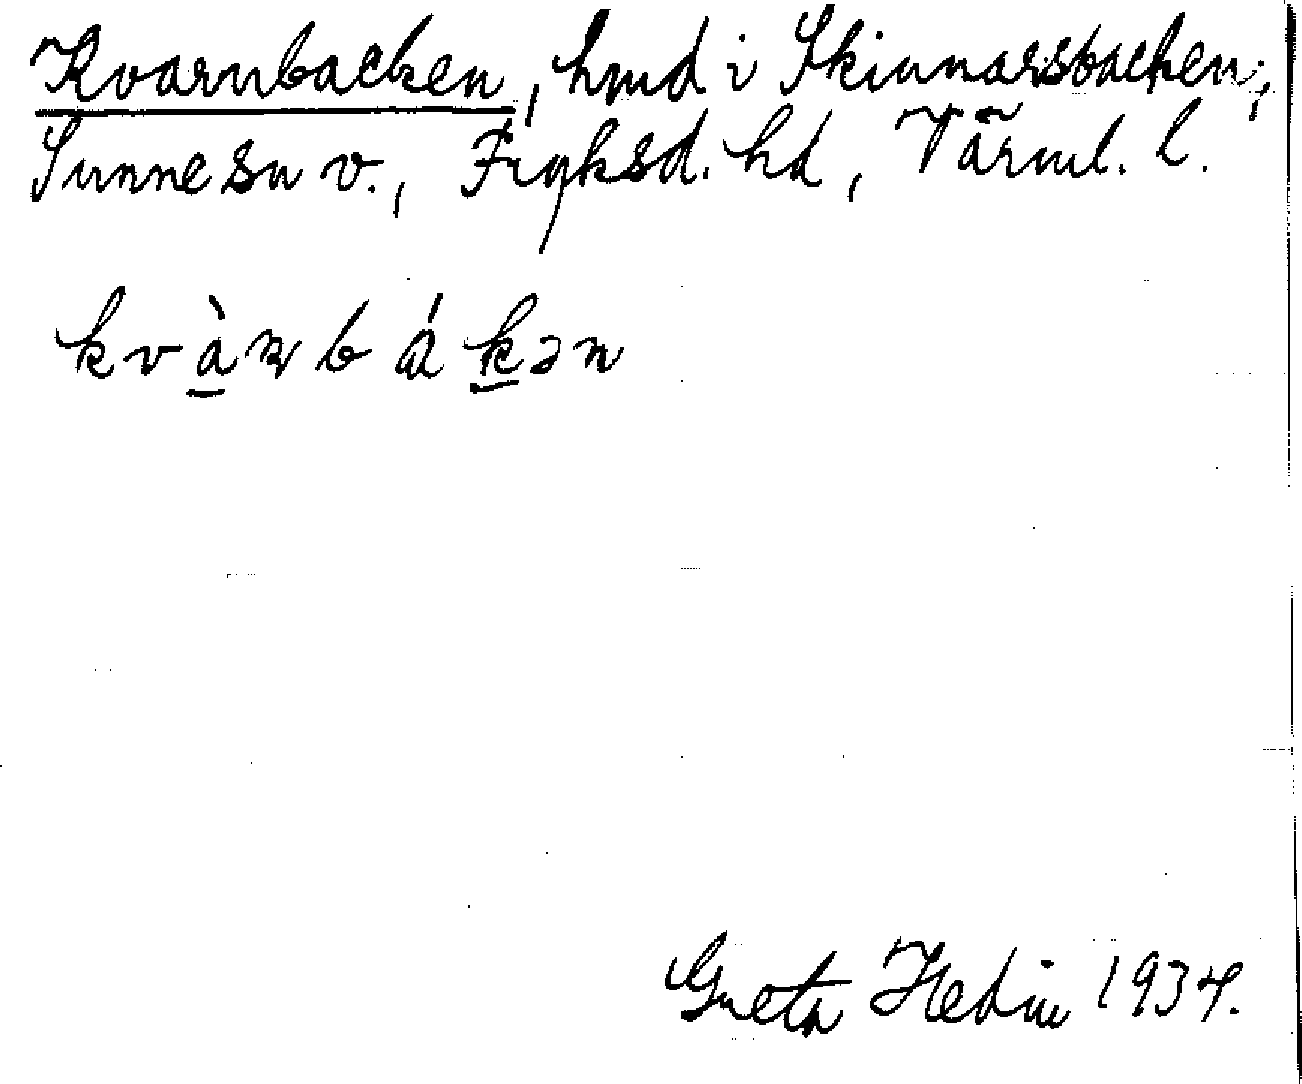 Kvarnbacken, hmd i Skinnarsbacken,
Sunne sn v., Fryksd. hd, Värml. l.
kvàɳbákən
Greta Hedin 1934.